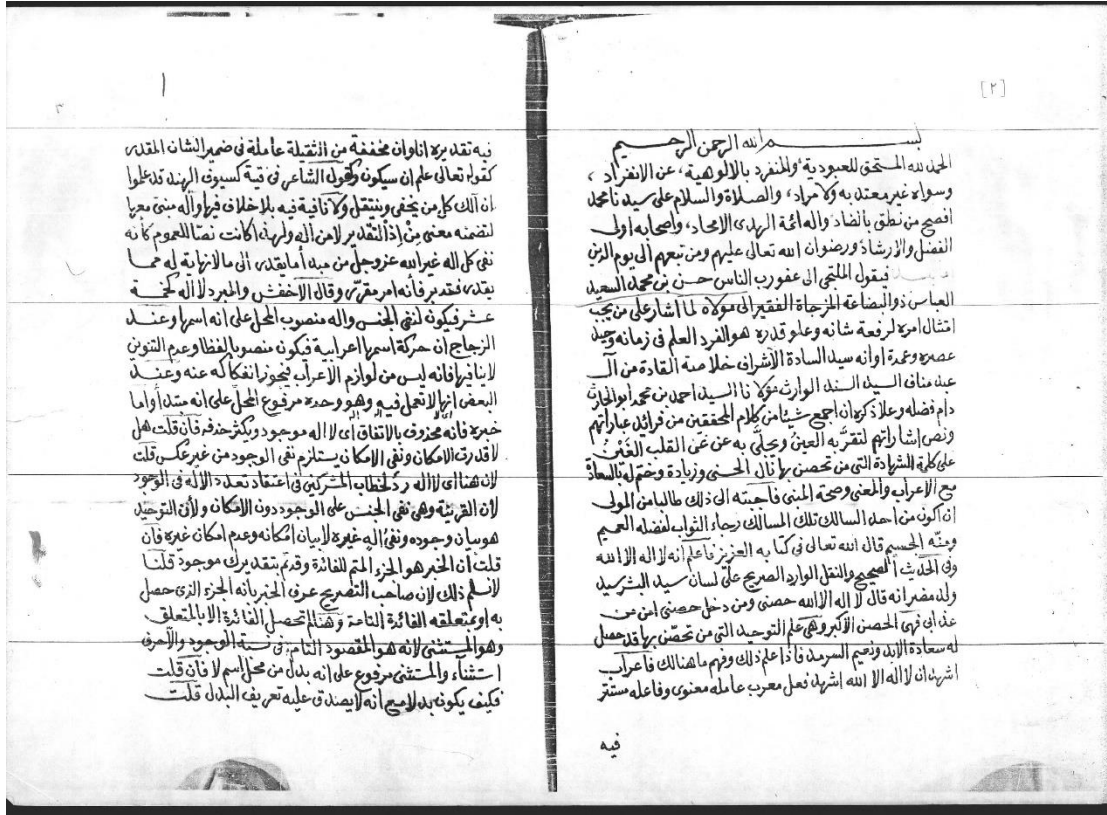 [٢]
بسم الله الرحمن الرحيم
الحمد لله المستحق للعبودية، والمنفرد بالالوهية، عن الانفراد،
وسواه غير معتد به ولا مراد، والصلاة والسلام على سيدنا محمد
افصح من نطق بالضاد واله ائمة الهدى الامجاد، واصحابه اولى
الفضل والارشاد ورضوان الله تعالى عليهم ومن تبعهم الى يوم الدين
فيقول الملتجى الى عفو رب الناس حسن بن محمد السعيد
العباس ذو البضاعة المزجاة الفقير الى مولاه لما اشار على من يجب
امتثال امره لرفعة شانه وعلو قدره هو الفرد العلم فى زمانه وحيد
عصره وعمدة اوانه سيد السادة الاشراف خلاصة القادة من آل
عبد مناف السيد السند الوارث مولانا السيد احمد بن محمد ابو الحارث
دام فضله وعلا ذكره ان اجمع شيئا من كلام المحققين من فرائد عباراتهم
ونص اشاراتهم لتقر به العين ويجلى به عن عين القلب الغين
على كلمة الشهادة التى من تحصن بها نال الحسنى وزيادة وختم له بالسعادة
مع الاعراب والمعنى وصحة المبنى فاجبته الى ذلك طالبا من المولى
ان اكون من احد السالك تلك المسالك رجاء الثواب لفضله العميم
ومنّه الجسيم قال الله تعالى فى كتابه العزيز فاعلم انه لا اله الا الله
وفى الحديث الصحيح والنقل الوارد الصريح على لسان سيد البشر سيد
ولد مضر انه قال لا اله الا الله حصنى ومن دخل حصنى امن من
عذابى فهى الحصن الاكبر وهى علم التوحيد التى من تحصن بها قد حصل
له سعادة الابد ونعيم السرمد فاذا علم ذلك وفهم ما هنالك فاعراب
اشهد ان لا اله الا الله اشهد فعل معرب عامله معنوى وفاعله مستتر
فيه
٣
فيه تقديره انا وان مخففة من الثقيلة عاملة فى ضمير الشان المقدر
كقوله تعالى علم ان سيكون وكقول الشاعر فى فتية كسيوف الهند قد علموا
ان هالك كل من يحفى وينتعل ولا نافية فيه بلا خلاف فيها واله مبنى معها
لتضمنه معنى من إذ التقدير لا من اله ولهذا كانت نصا للعموم كأنه
نفى كل اله غير الله عز وجل من مبدأ ما يقدر الى ما لا نهاية له مما
يقدر فقدير فأنه امر مقرر وقال الأخفش والمبرد لا اله كخمسة
عشر فيكون لنفى الجنس واله منصوب المحل على انه اسمها وعند
الزجاج ان حركة اسمها اعرابية فيكون منصوبا لفظا وعدم التنوين
لا ينافيها فانه ليس من لوازم الأعراب فيجوز انفكاكه عنه وعند
البعض انها لا تعمل فيه وهو وحده مرفوع المحل على انه مبتدأ واما
خبره فانه محذوف بالاتفاق اى لا اله موجود ويكثر حذفه فان قلت هل
لا قدرت الامكان ونفى الامكان يستلزم نفى الوجود من غير عكس قلت
لان هذا اى لا اله ردّ لخطاب المشركين فى اعتقاد تعدد الآله فى الوجود
لان القرينة وهى نفى الجنس على الوجود دون الامكان ولأن التوحيد
هو بيان وجوده ونفى اله غيره لا بيان امكانه وعدم امكان غيره فان
قلت ان الخبر هو الجزء المتم للفائدة وقد تم بتقديرك موجود قلنا
لا نسلم ذلك لان صاحب التصريح عرف الخبر بأنه الجزء الذى حصل
به او بمتعلقه الفائدة التامة وهنا لم تحصل الفائدة الا بالمتعلق
وهو المستثنى لانه هو المقصود التام فى نسبة الوجود والأحرف
استثناء والمستثنى مرفوع على انه بدل من محل اسم لا فان قلت
فكيف يكون بدلا مع انه لا يصدق عليه تعريف البدل قلت